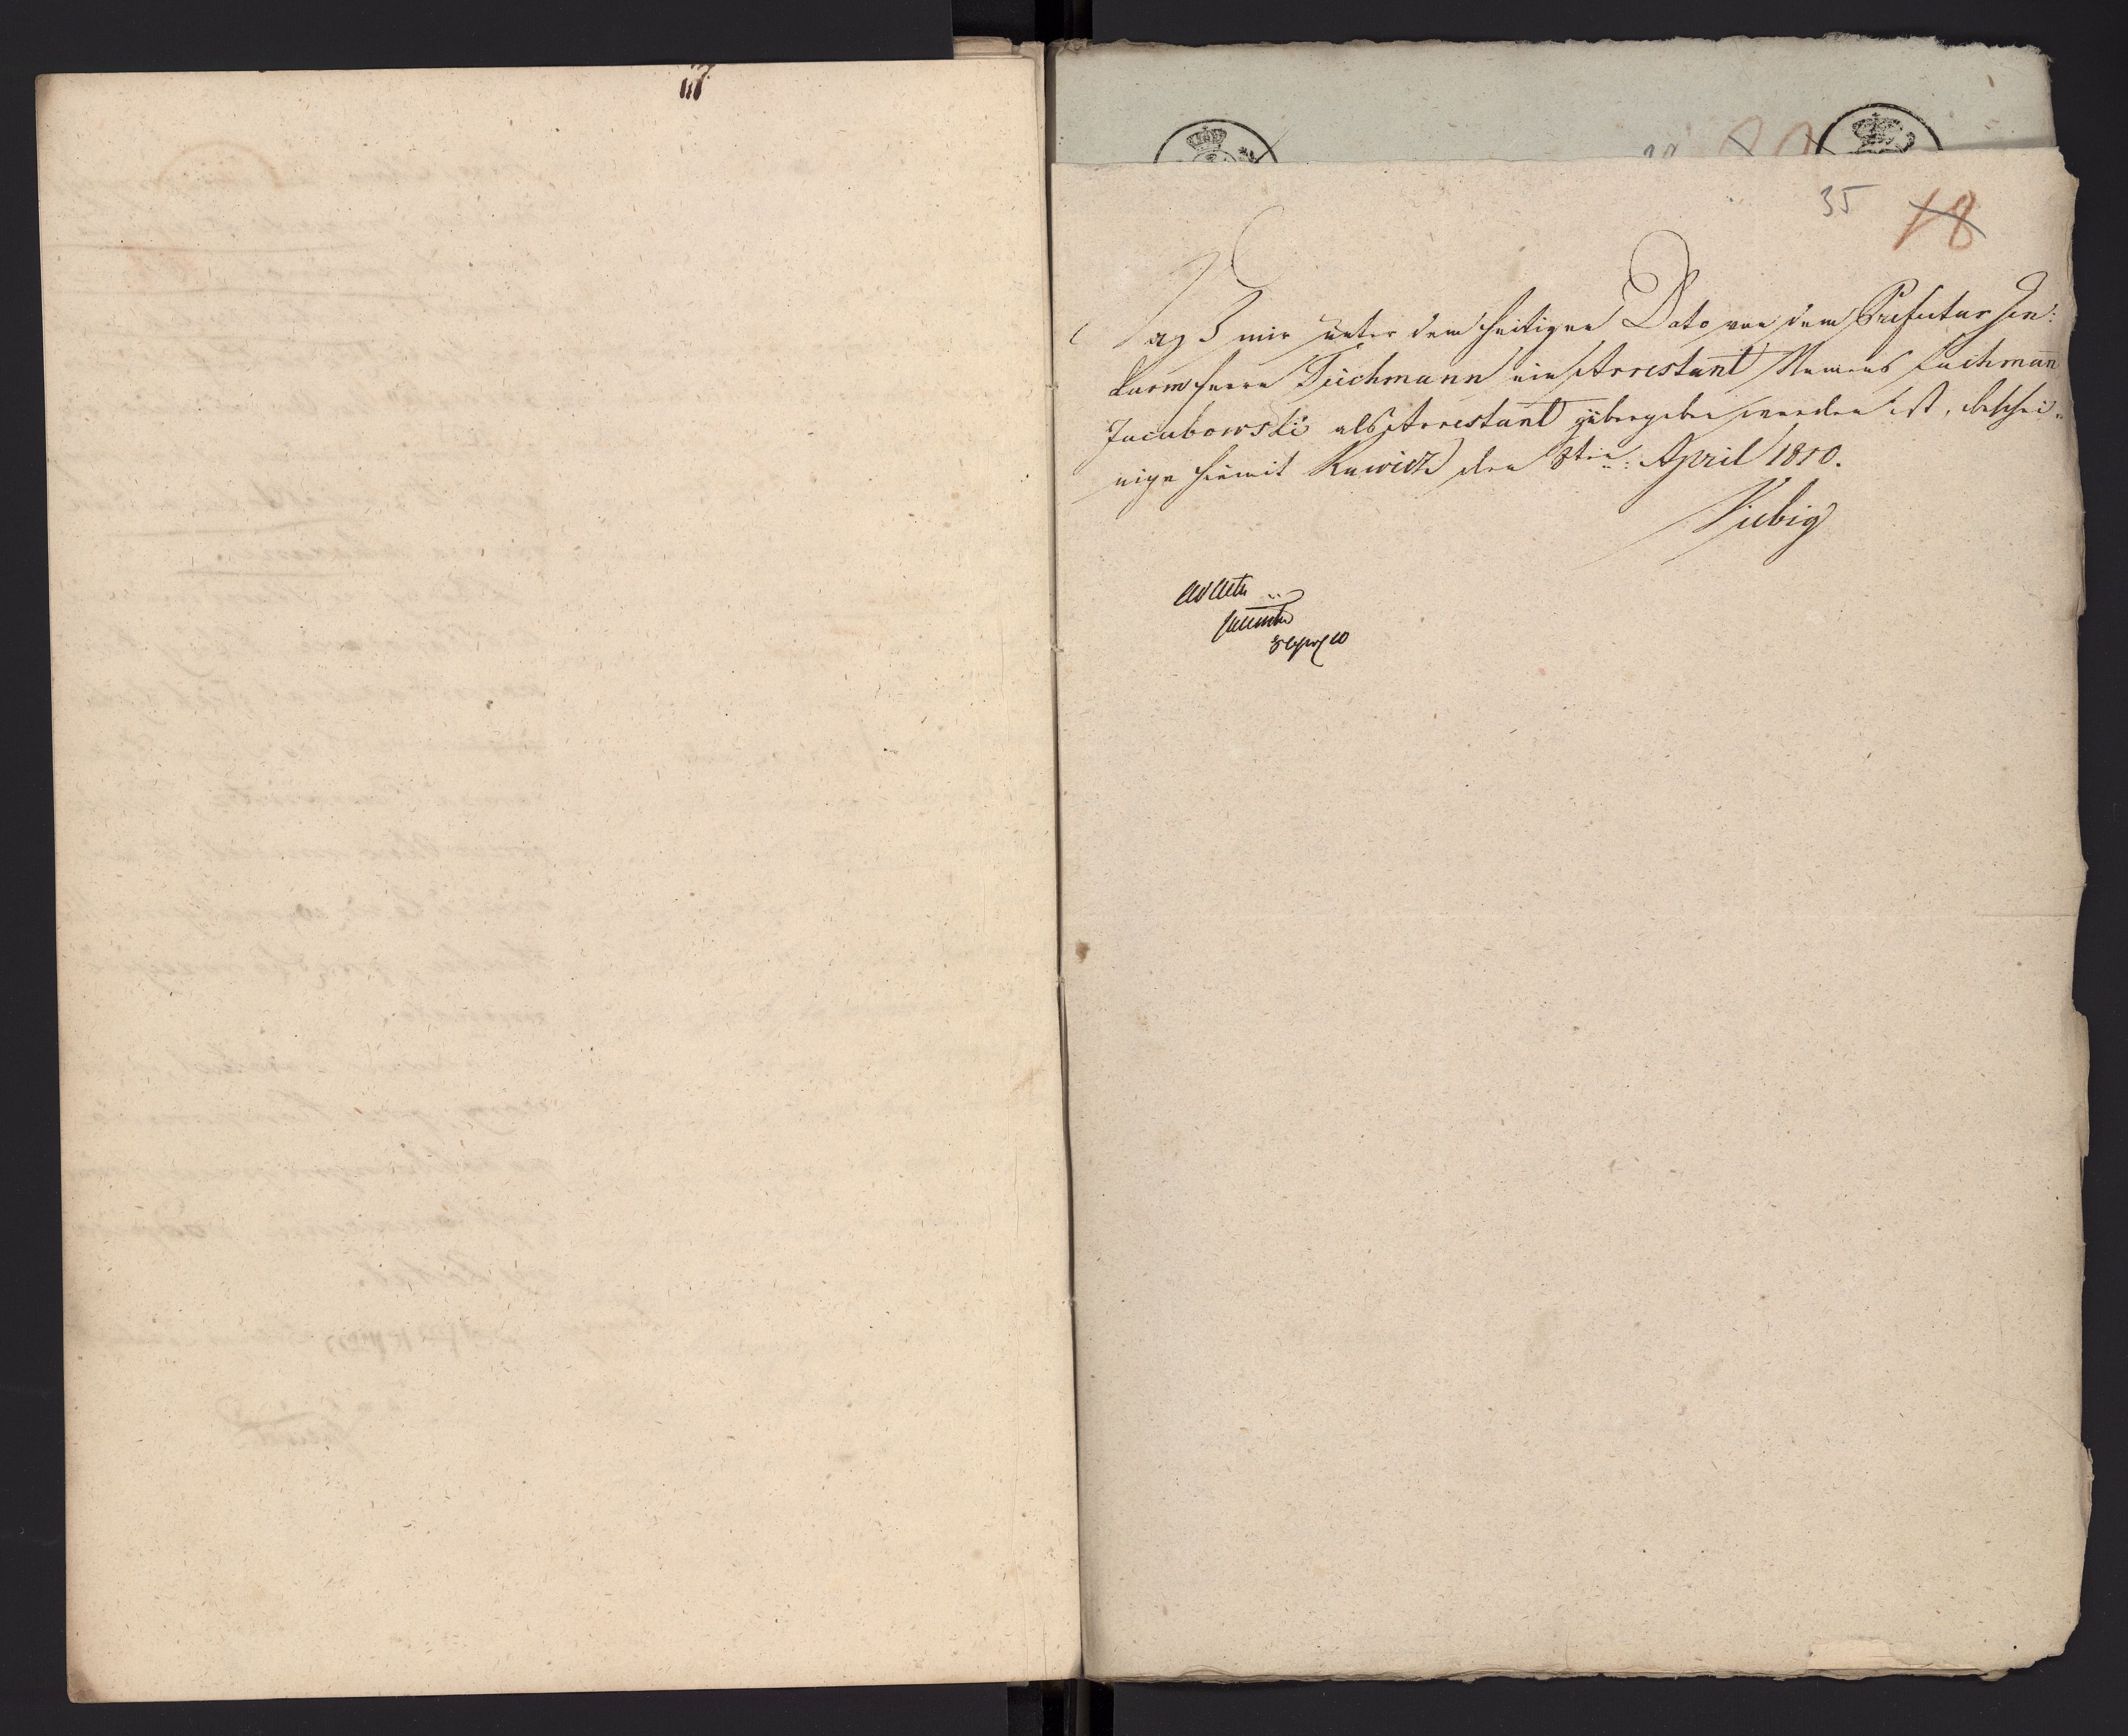 35 18
Daß mir unter dem heitigen Dato von dem Prefectur Jen:
darm Herrn Teichmann ein Arrestant Namens Lachman̄
Jacubowski als Arrestant übergeben worden ist, beschei¬
nige hiemit Rawicz den 8ten: April 1810.
Viebig
Ad Acta
8 Apr 10